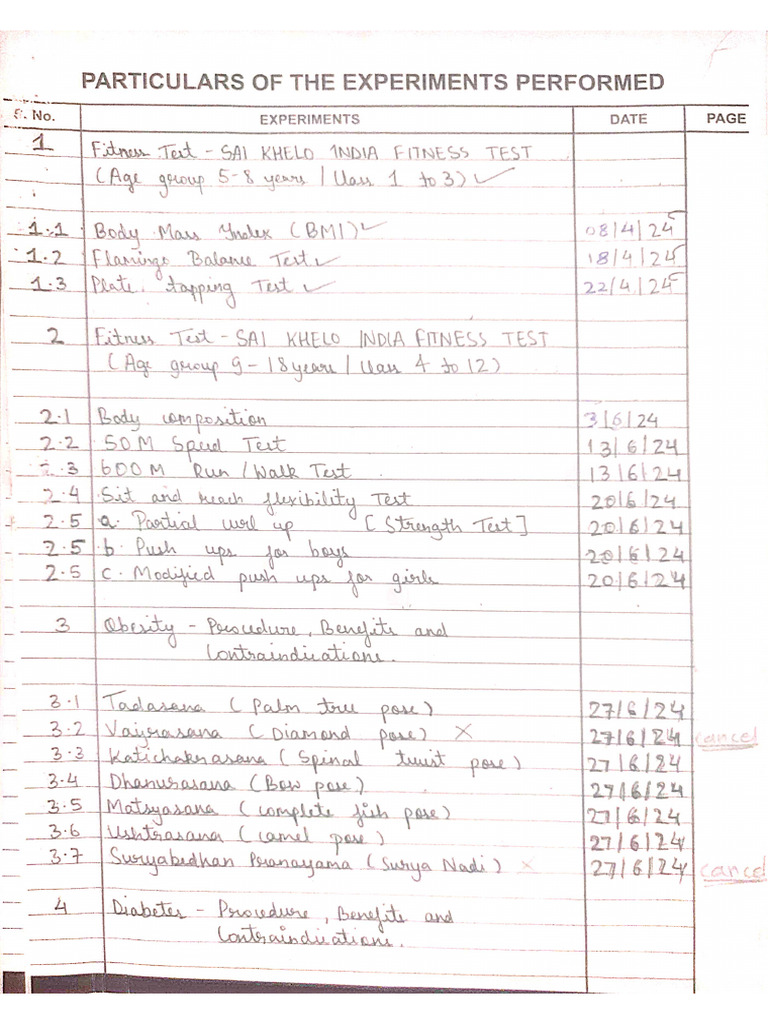 PARTICULARS OF THE EXPERIMENTS PERFORMED
S. No. EXPERIMENTS DATE PAGE
1 Fitness Test - SAI KHELO INDIA FITNESS TEST
(Age group 5-8 years / Class 1 to 3) ✓
1.1 Body Mass Index (BMI) ✓ 08/4/24
1.2 Flamingo Balance Test ✓ 18/4/24
1.3 Plate tapping Test ✓ 22/4/24
2 Fitness Test - SAI KHELO INDIA FITNESS TEST
(Age group 9-18 years / Class 4 to 12)
2.1 Body composition 3/6/24
2.2 50M Speed Test 13/6/24
2.3 600M Run/Walk Test 13/6/24
2.4 Sit and reach flexibility Test 20/6/24
2.5 a. Partial curl up [Strength Test] 20/6/24
2.5 b. Push ups for boys 20/6/24
2.5 c. Modified push ups for girls 20/6/24
3 Obesity - Procedure, Benefits and
Contraindications.
3.1 Tadasana (Palm tree pose) 27/6/24
3.2 Vajrasana (Diamond pose) X 27/6/24 cancel
3.3 Katichakrasana (Spinal twist pose) 27/6/24
3.4 Dhanurasana (Bow pose) 27/6/24
3.5 Matsyasana (complete fish pose) 27/6/24
3.6 Ushtrasana (camel pose) 27/6/24
3.7 Suryabedhan Pranayama (Surya Nadi) X 27/6/24 cancel
4 Diabetes - Procedure, Benefits and
Contraindications.